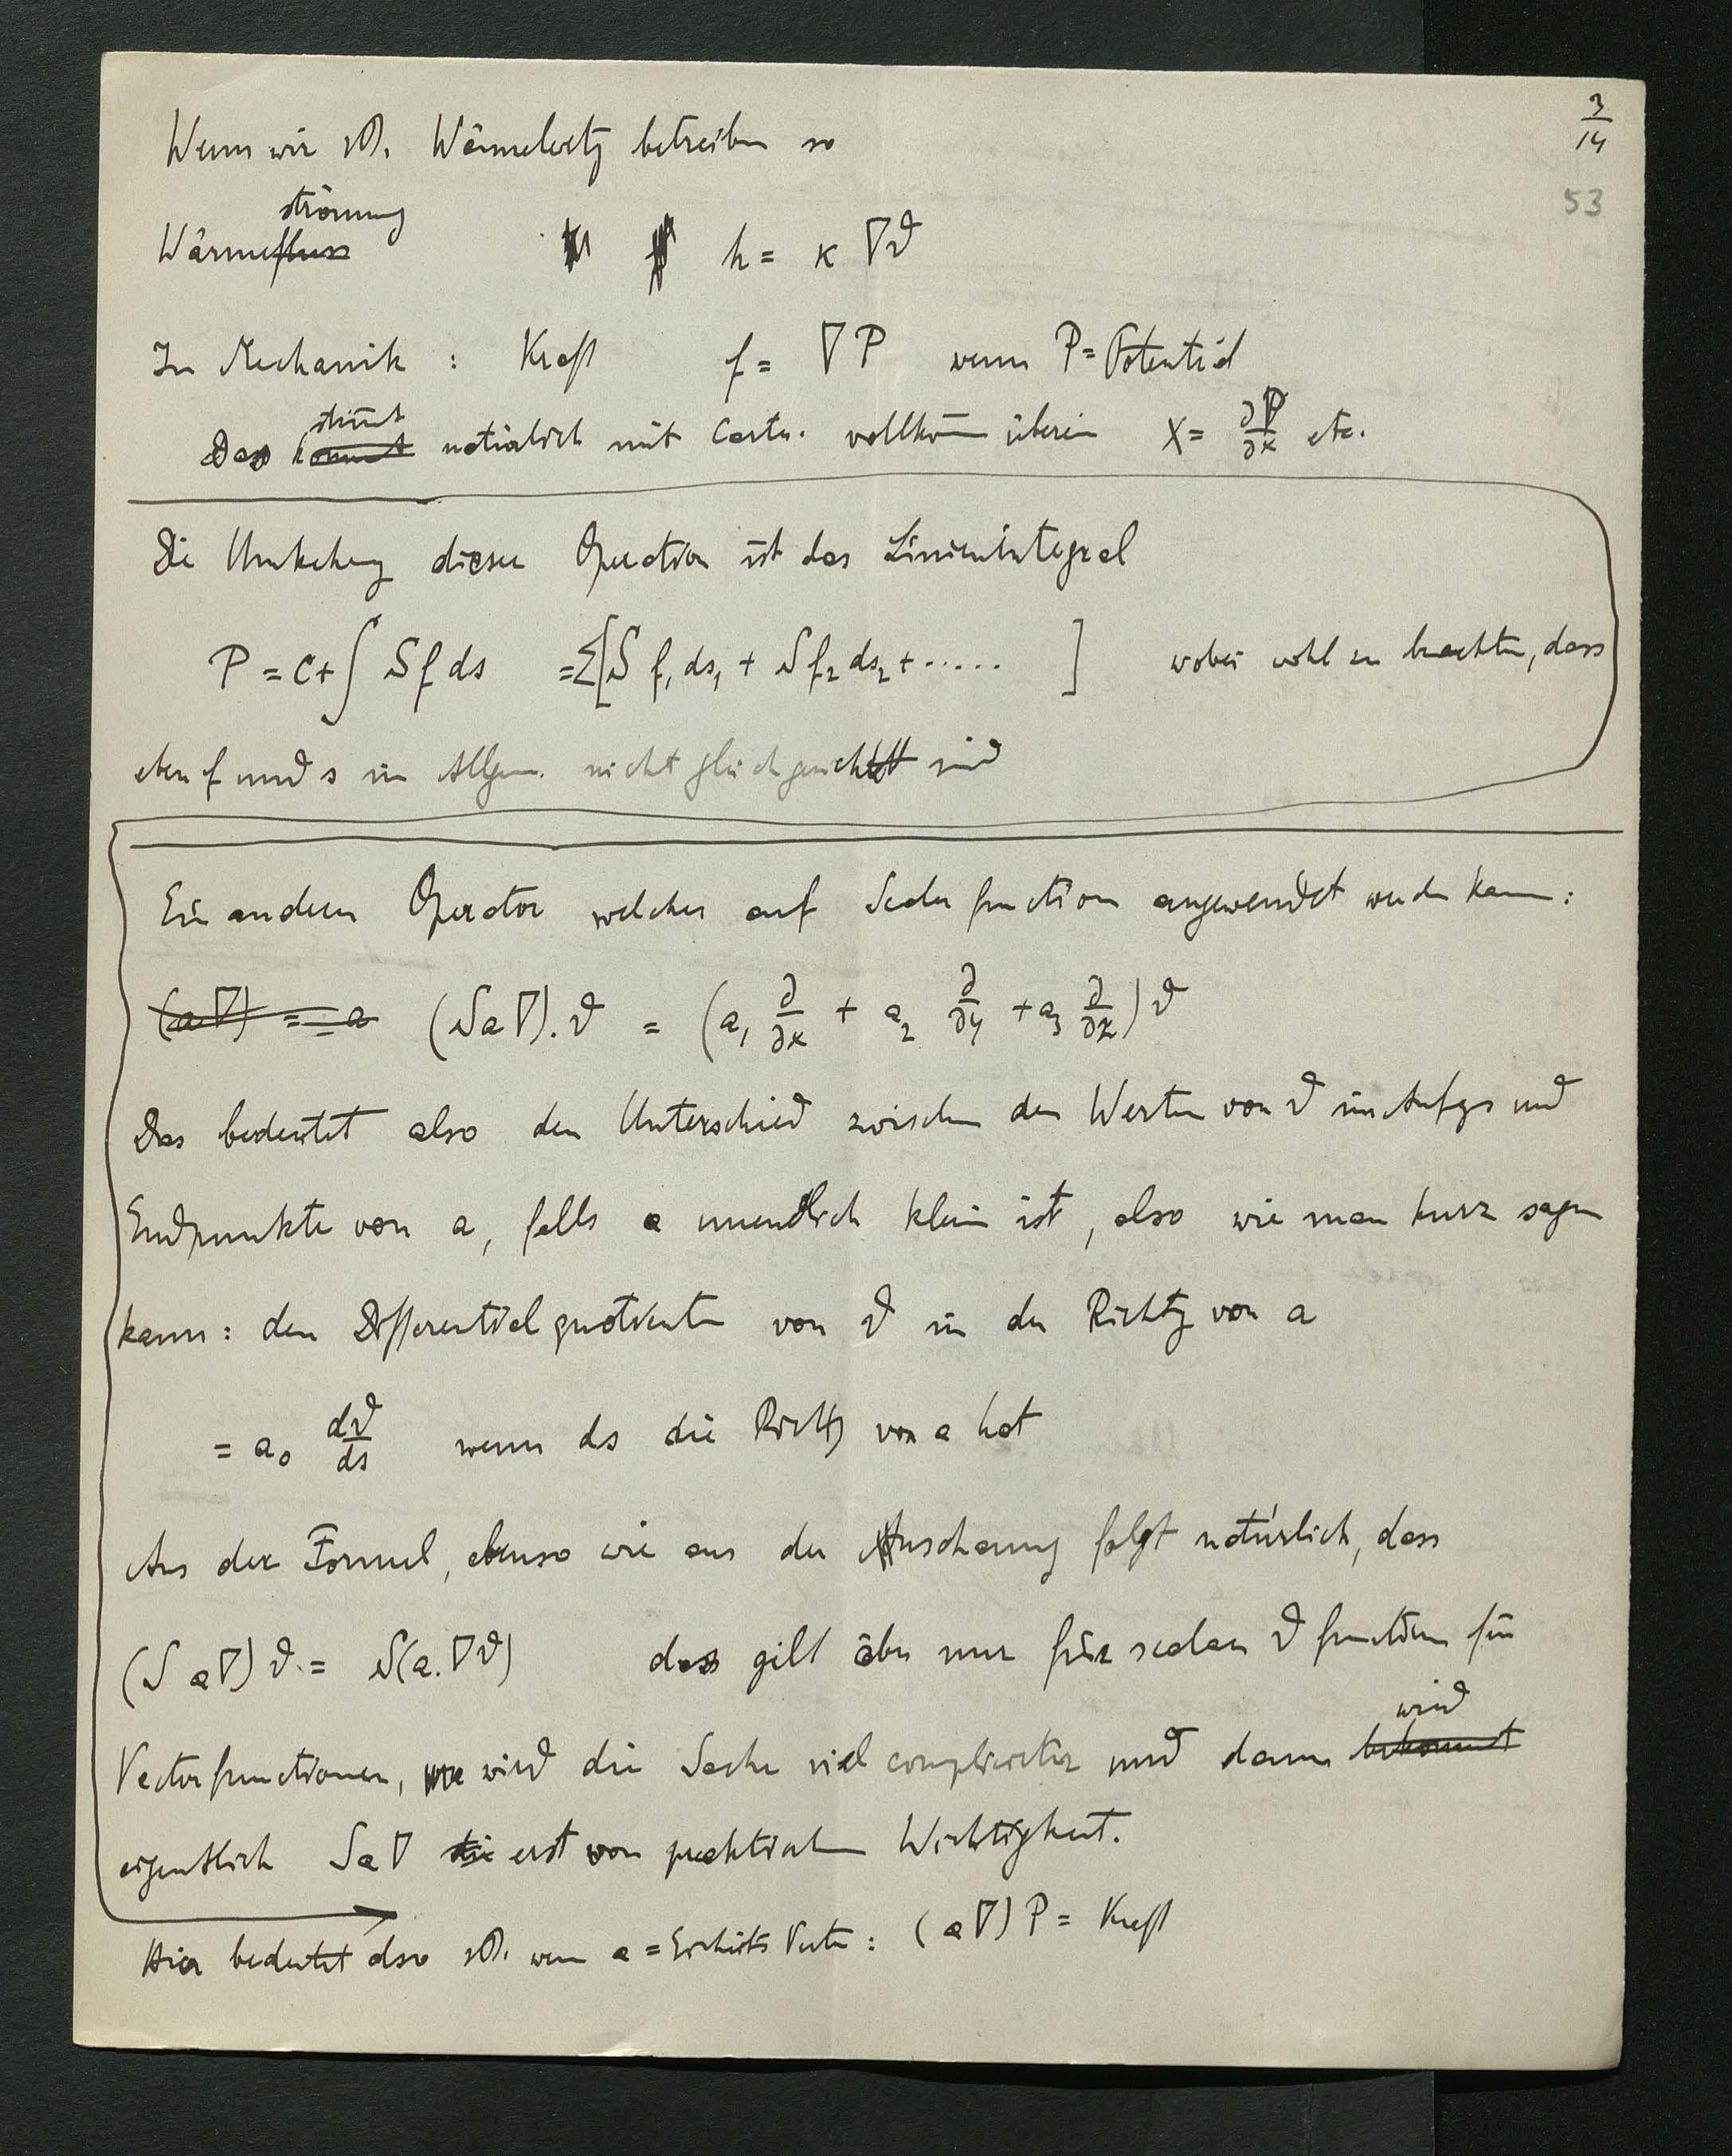 3/14
53
Wenn wir z.B. Wärmeleitg betreiben so
strömung
Wärmefluss h = κ ∇ϑ
In Mechanik : Kraft f = ∇P wenn P = Potential
stimt
Das kommt natürlich mit Carts. vollkom̄ überein X = ∂P/∂x etc.
Die Umkehrg dieser Operation ist das Linienintegral
P = C + ∫ S f ds = Σ[S f₁ ds₁ + S f₂ ds₂ + ..... ] wobei wohl zu beachten, dass
eben f und s im Allgem. nicht gleichgerichtet sind
Ein anderer Operator welcher auf Scalarfunction angewendet werden kann :
(a∇) = a (S a∇). ϑ = (a₁ ∂/∂x + a₂ ∂/∂y + a₃ ∂/∂z) ϑ
Das bedeutet also den Unterschied zwischen den Werten von ϑ im Anfgs und
Endpunkte von a, falls a unendlich klein ist, also wie man kurz sagen
kann : den Differentialquotienten von ϑ in der Richtg von a
= a₀ dϑ/ds wenn ds die Richtg von a hat
Aus der Formel, ebenso wie aus der Anschauung folgt natürlich, dass
(S a∇) ϑ = S(a. ∇ϑ) das gilt aber nur für scalare ϑ function für
wird
Vectorfunctionen, wird die Sache viel complicirter und dann bekommt
eigentlich S a∇ die erst von praktischer Wichtigkeit.
Hier bedeutet also z.B. wenn a = Einheits Vector : (a∇) P = Kraft